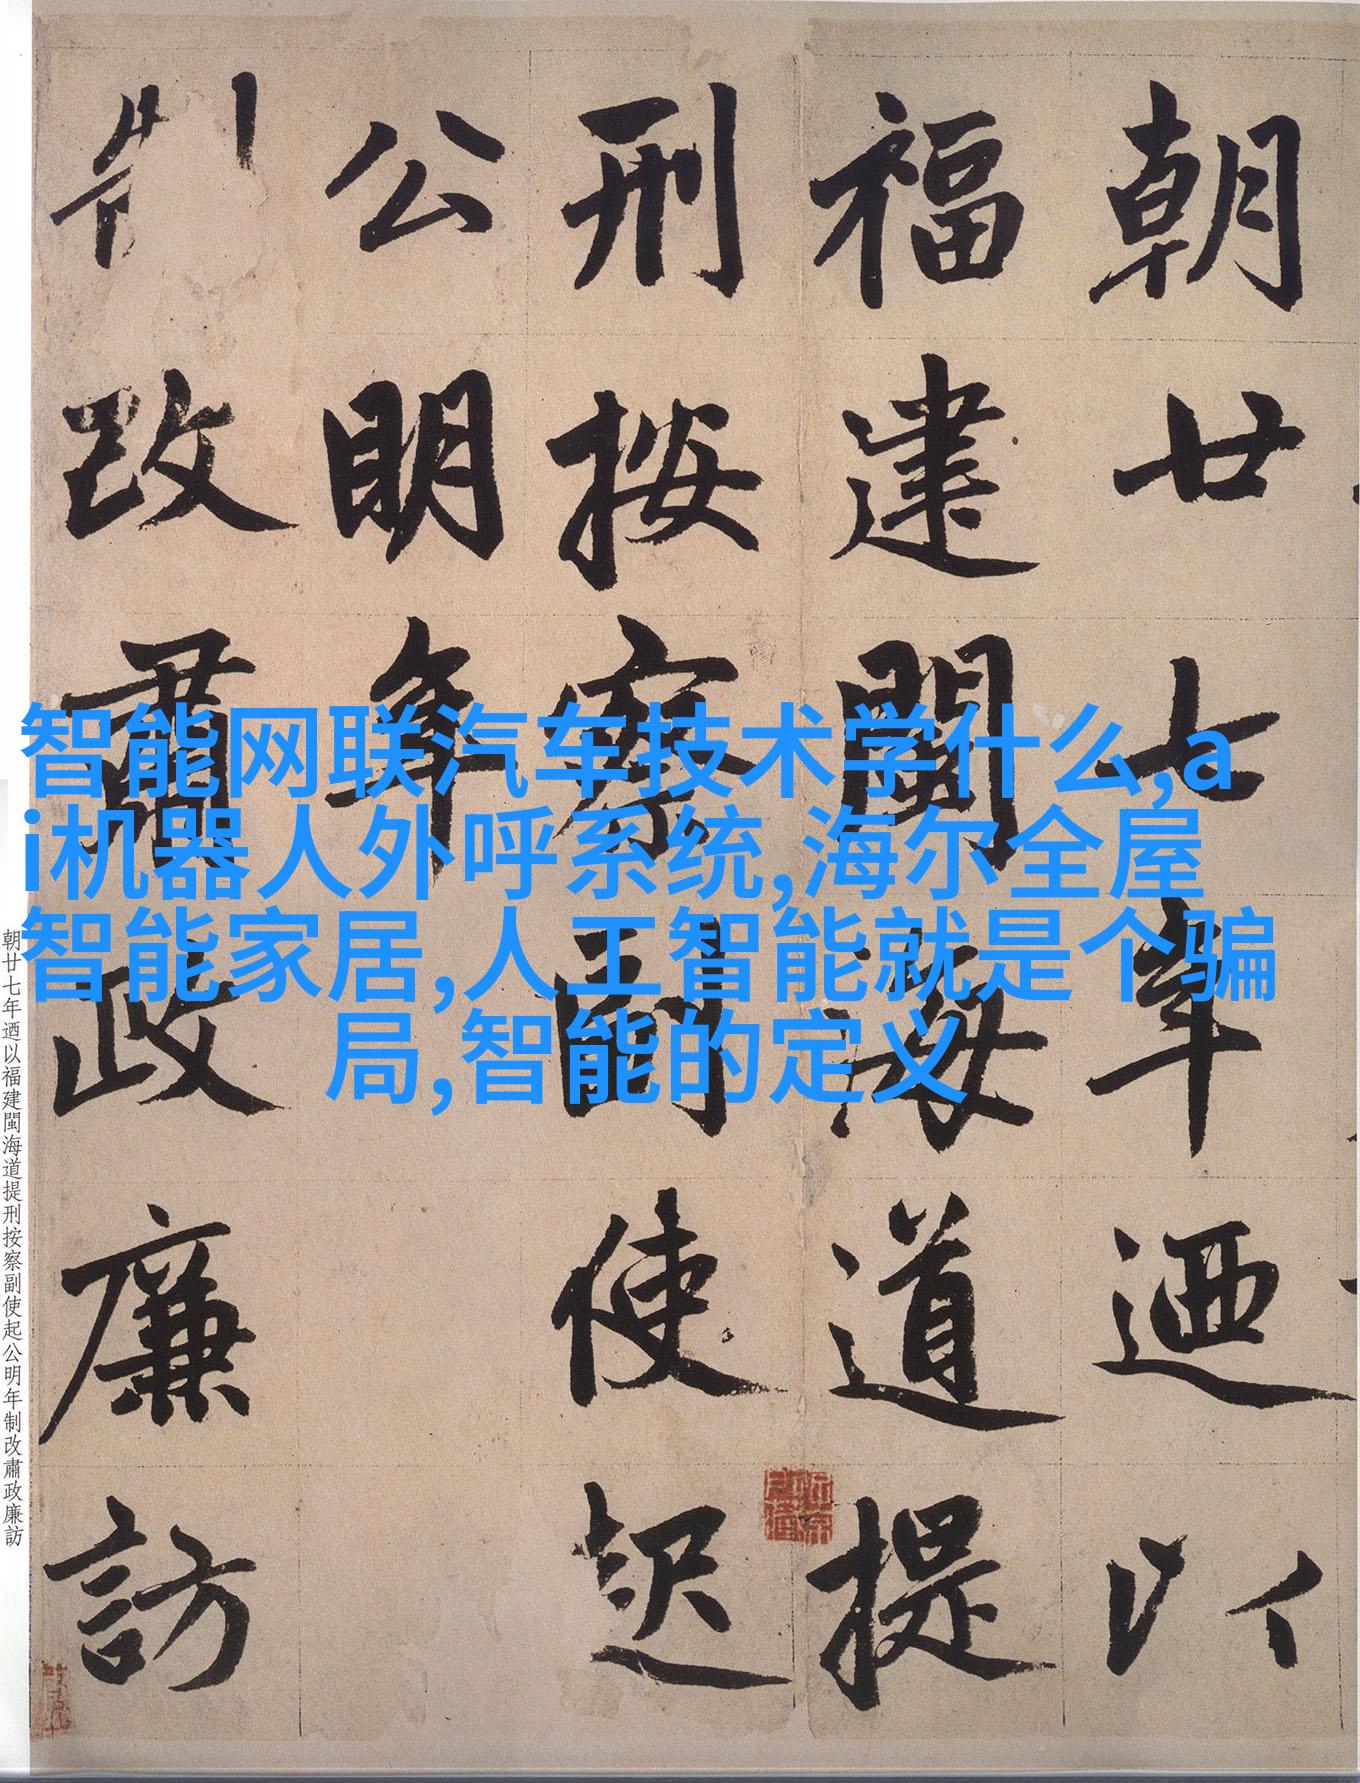 朝廿七年迺以
福建閩海道提
刑按察副使起
公明年
制改肅政廉訪
智能网联汽车技术学什么,a
i机器人外呼系统,海尔全屋
智能家居,人工智能就是个骗
局,智能的定义
朝廿七年迺以福建閩海道提刑按察副使起公明年制改肅政廉訪